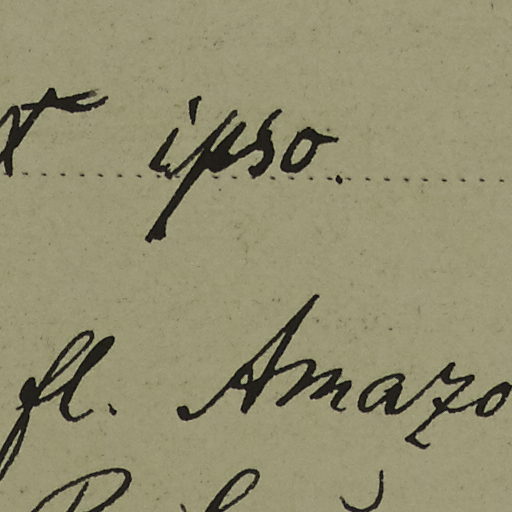 ipso.
fl. Amazo